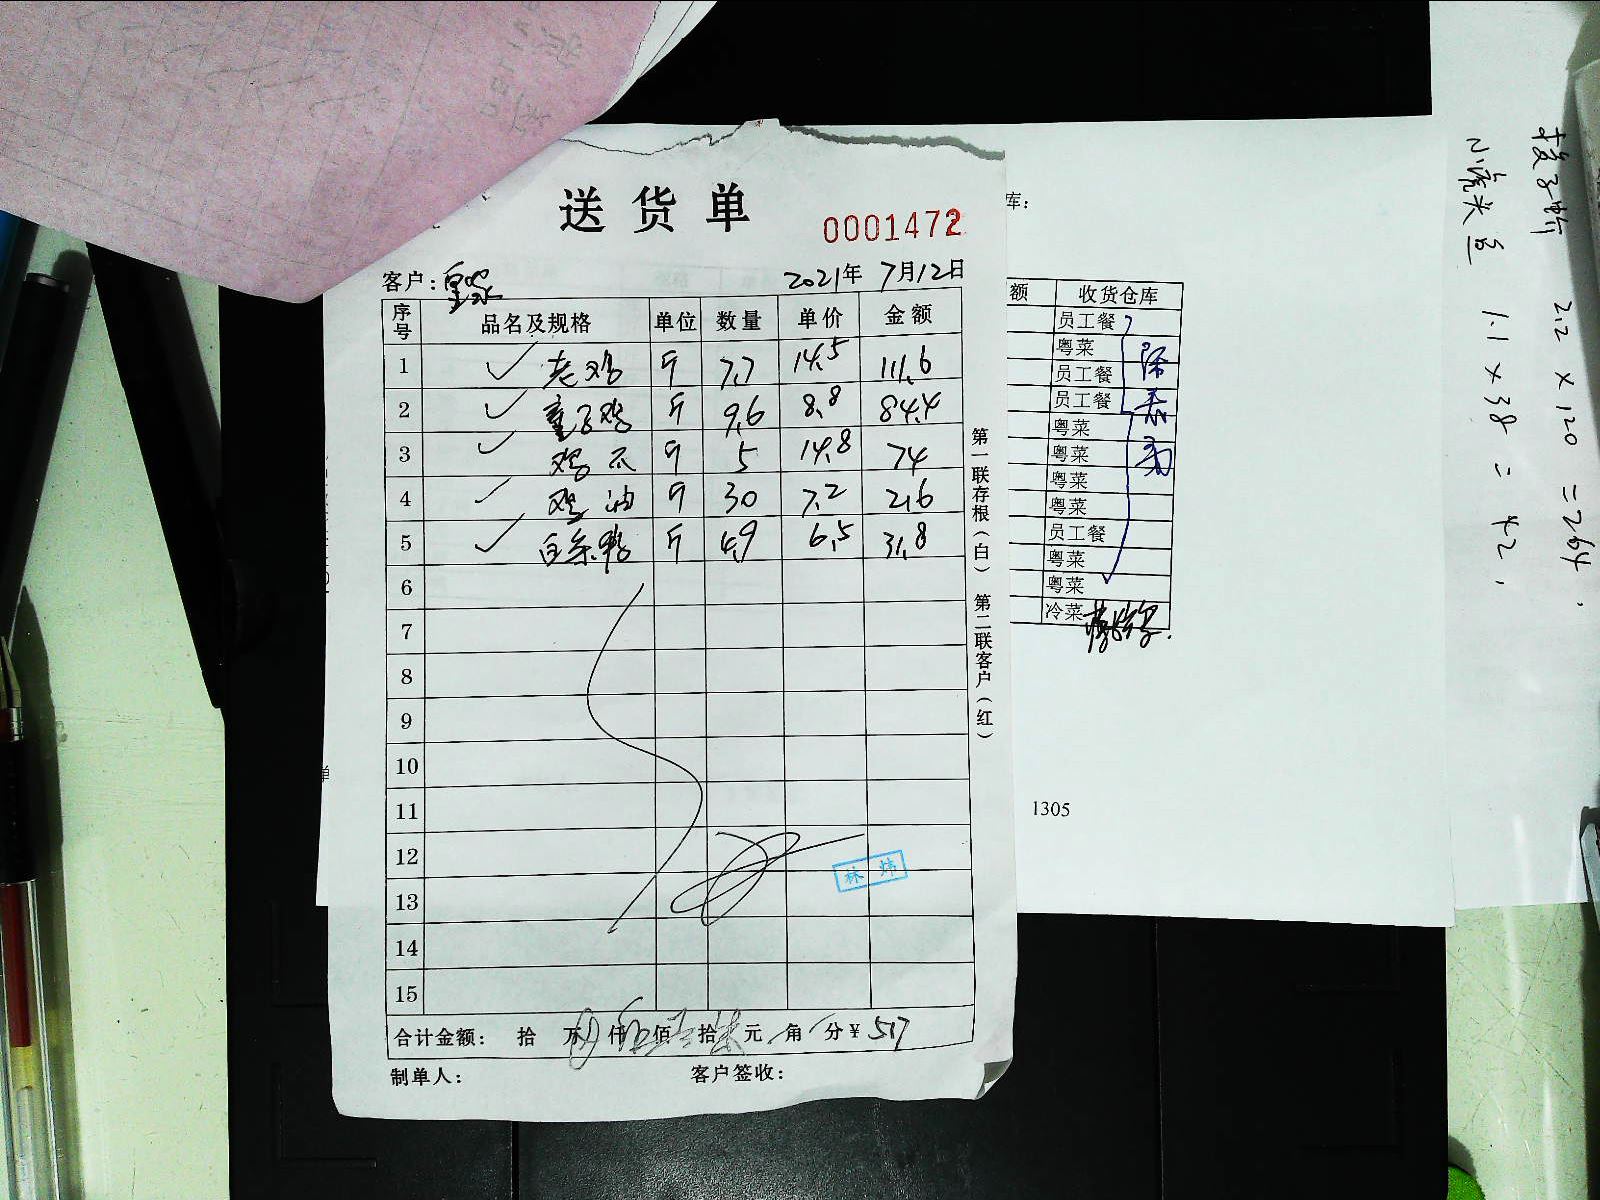 送货单
0001472
客户：皇家 2021年7月12日
序号 品名及规格 单位 数量 单价 金额
1 老鸡 斤 7.7 14.5 111.6
2 童子鸡 斤 9.6 8.8 84.4
3 鸡爪 斤 5 14.8 74
4 鸡油 斤 30 7.2 216
5 白条鸭 斤 4.9 6.5 31.8
6
7
8
9
10
11
12
13
14
15
林炜
合计金额： 拾 万 仟 佰 拾 元 角 分 ¥ 517
制单人： 客户签收：
第一联存根（白） 第二联客户（红）
库：
额 收货仓库
员工餐
粤菜
员工餐
员工餐
粤菜
粤菜
粤菜
粤菜
员工餐
粤菜
粤菜
冷菜
1305
单
2.2 × 120 = 264.
1.1 × 38 = 42.